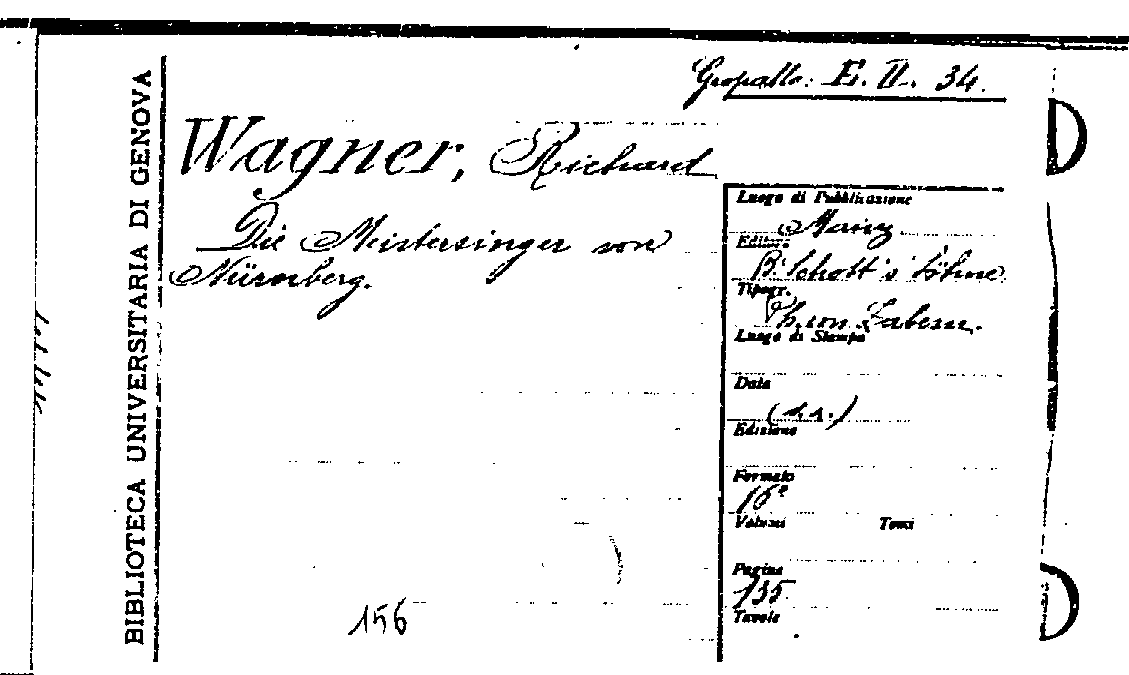 Gropallo: E. II. 34.
BIBLIOTECA UNIVERSITARIA DI GENOVA
Wagner, Richard
Die Meistersinger von
Nürnberg.
Luogo di Pubblicazione
Mainz
Editore
B. Schott's Söhne
Tipogr.
Ph. von Zabern.
Luogo di Stampa
Data
(s.a.)
Edizione
Formato
16º
Volumi Tomi
Pagine
135.
Tavole
156